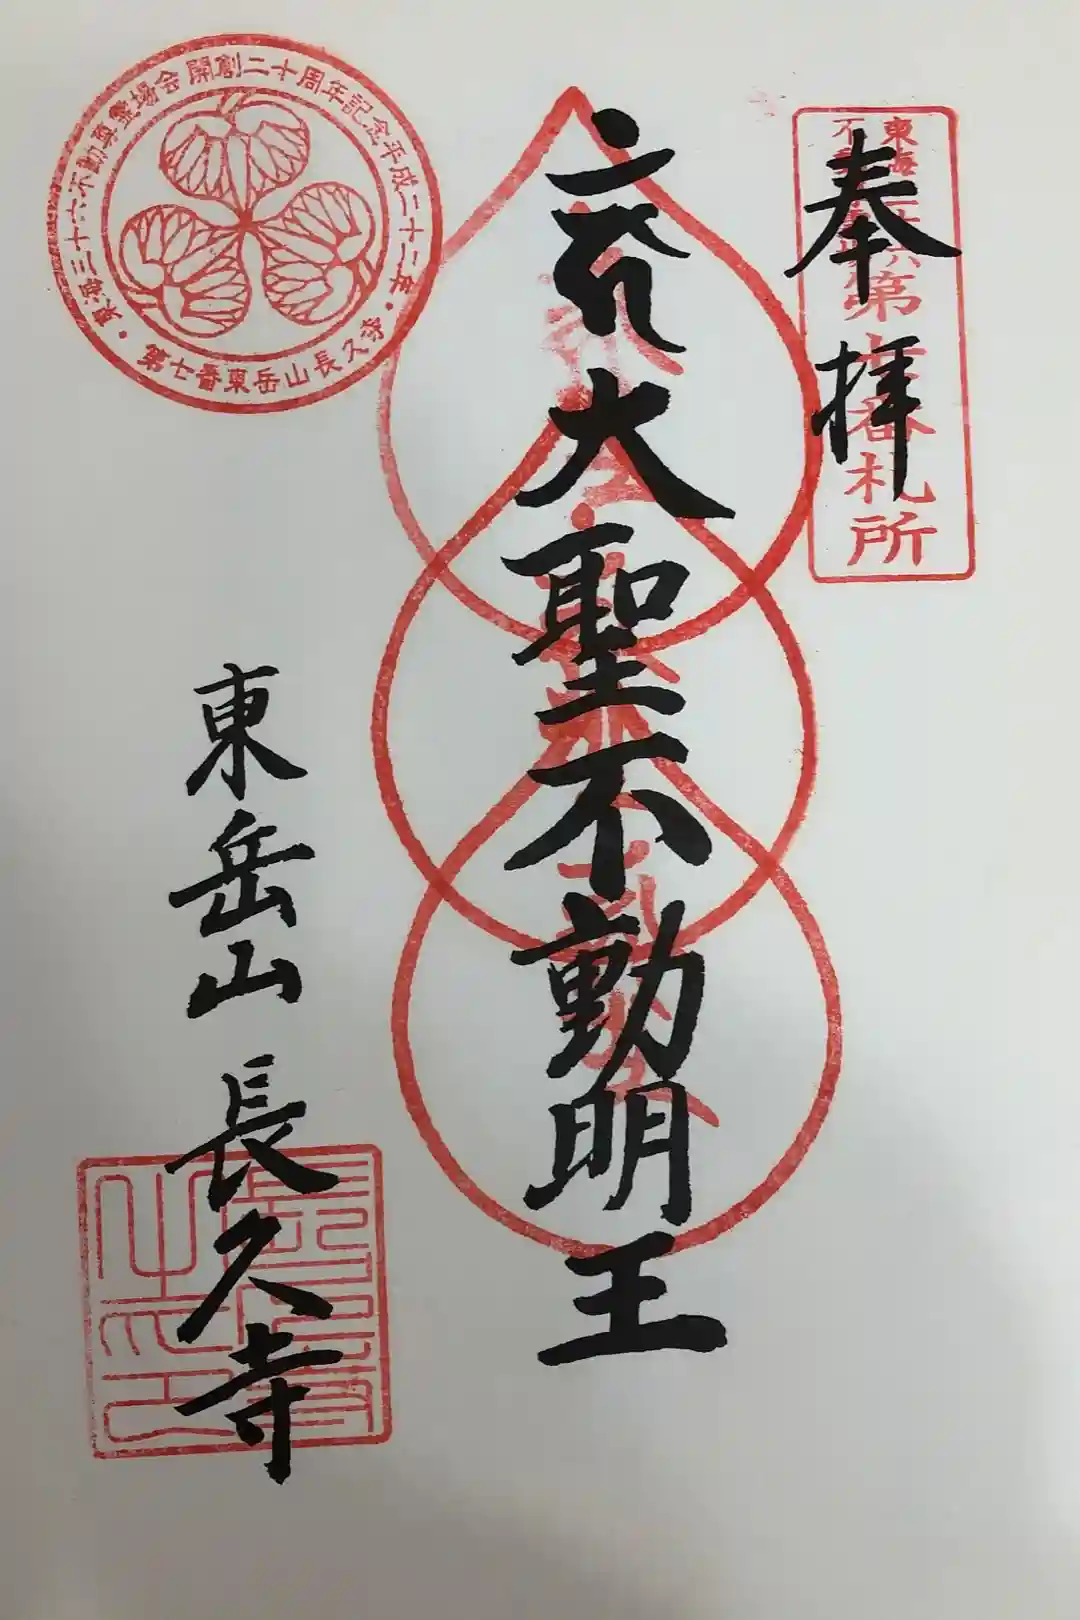 奉拝
東海
不動
第七番札所
大聖不動明王
東海三十六不動尊霊場会 開創二十周年記念平成二十二年
第七番東岳山長久寺
東岳山 長久寺